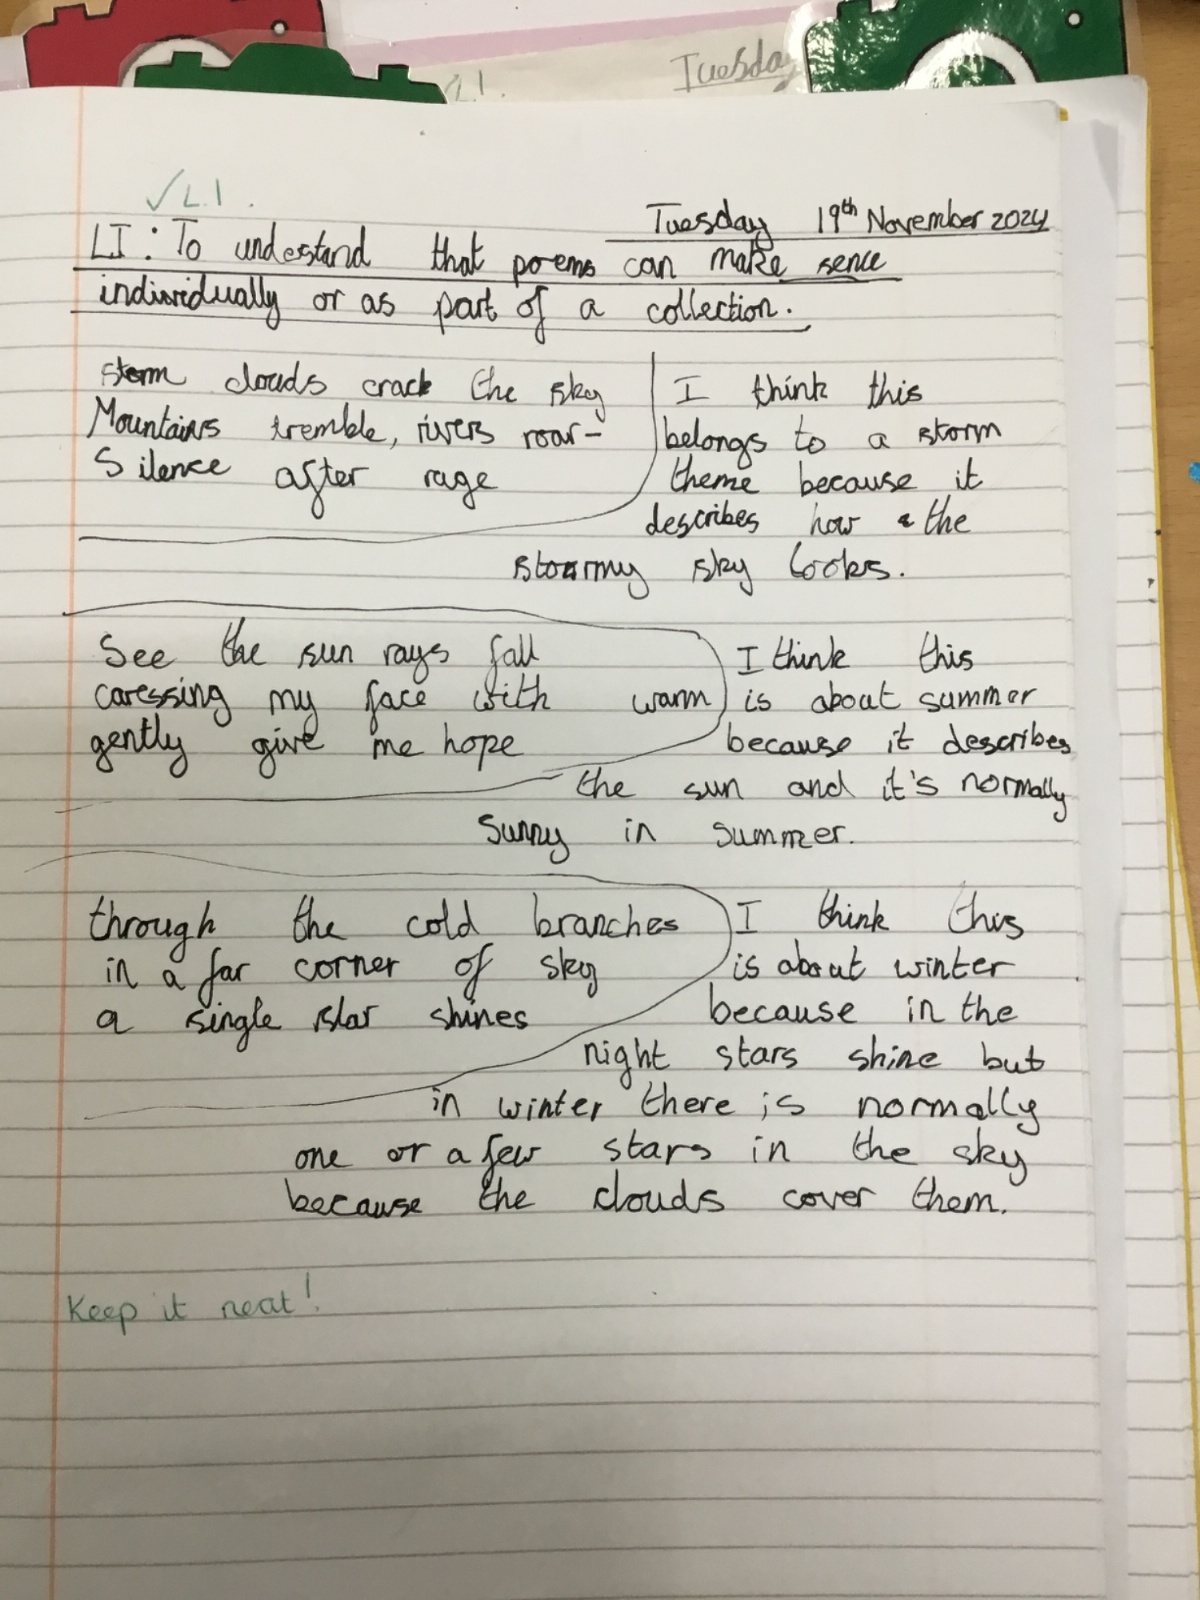 Tuesday
L1.
✓L.I.
Tuesday 19th November 2024
LI: To understand that poems can make sence
individually or as part of a collection.
storm clouds crack the sky
Mountains tremble, rivers roar-
Silence after rage
I think this
belongs to a storm
theme because it
describes how the
stormy sky looks.
See the sun rays fall
caressing my face with warm
gently give me hope
I think this
is about summer
because it describes
the sun and it's normally
sunny in summer.
through the cold branches
in a far corner of sky
a single star shines
I think this
is about winter
because in the
night stars shine but
in winter there is normally
one or a few stars in the sky
because the clouds cover them.
Keep it neat!